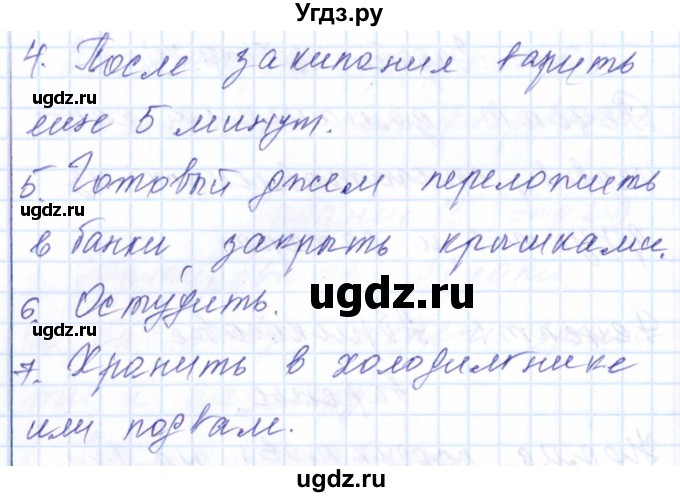 Угдз.ру
4. После закипания варить
ugdz.ru
еще 5 минут.
5. Готовый джем переложить
ugdz.ru
в банки, закрыть крышками.
6. Остудить.
ugdz.ru
ugdz.ru
7. Хранить в холодильнике
ugdz.ru
или подвал.
ugdz.ru